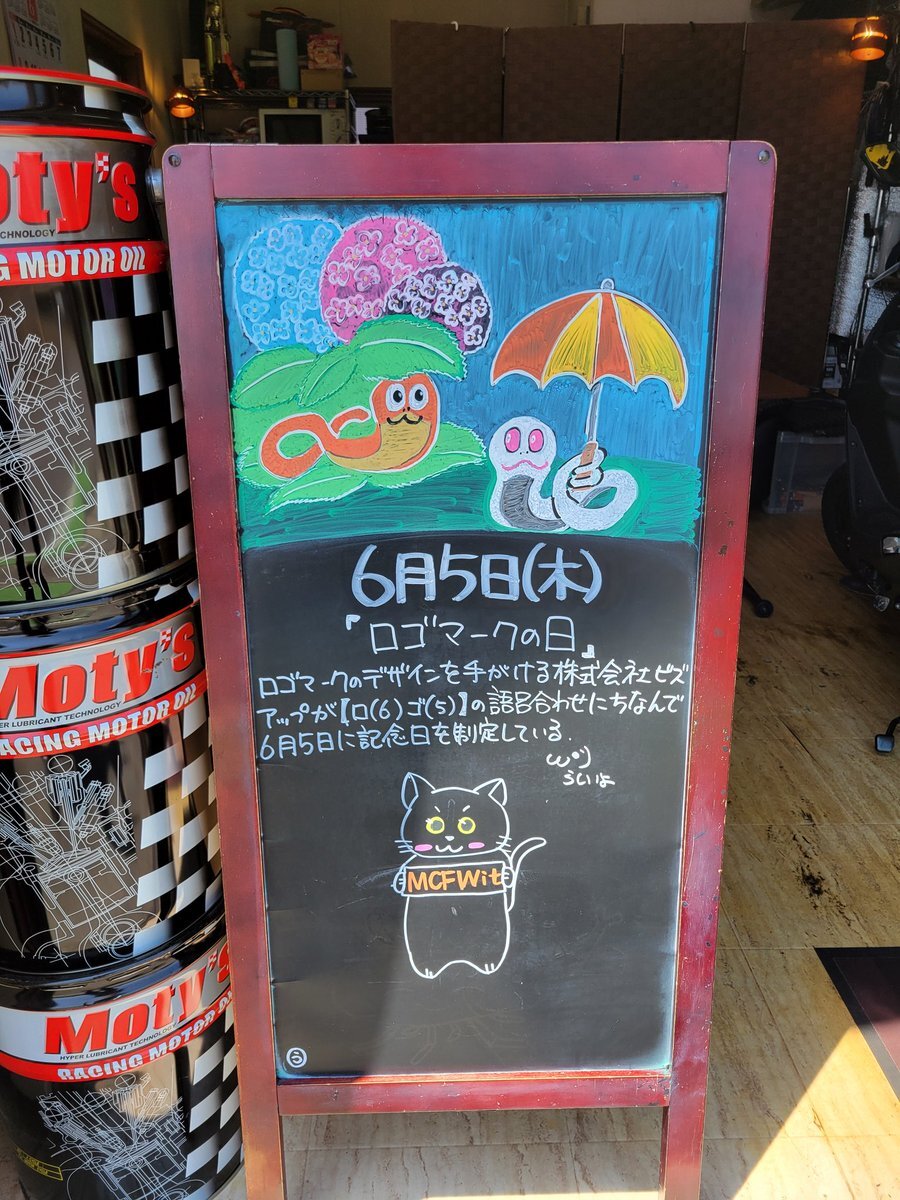 6月5日(木)
『ロゴマークの日』
ロゴマークのデザインを手がける株式会社ビズ
アップが【ロ(6)ゴ(5)】の語呂合わせにちなんで
6月5日に記念日を制定している.
ういよ
MCFWit
う
Moty's
TECHNOLOGY
NG MOTOR OIL
Moty's
HYPER LUBRICANT TECHNOLOGY
RACING MOTOR OIL
Moty's
HYPER LUBRICANT TECHNOLOGY
RACING MOTOR